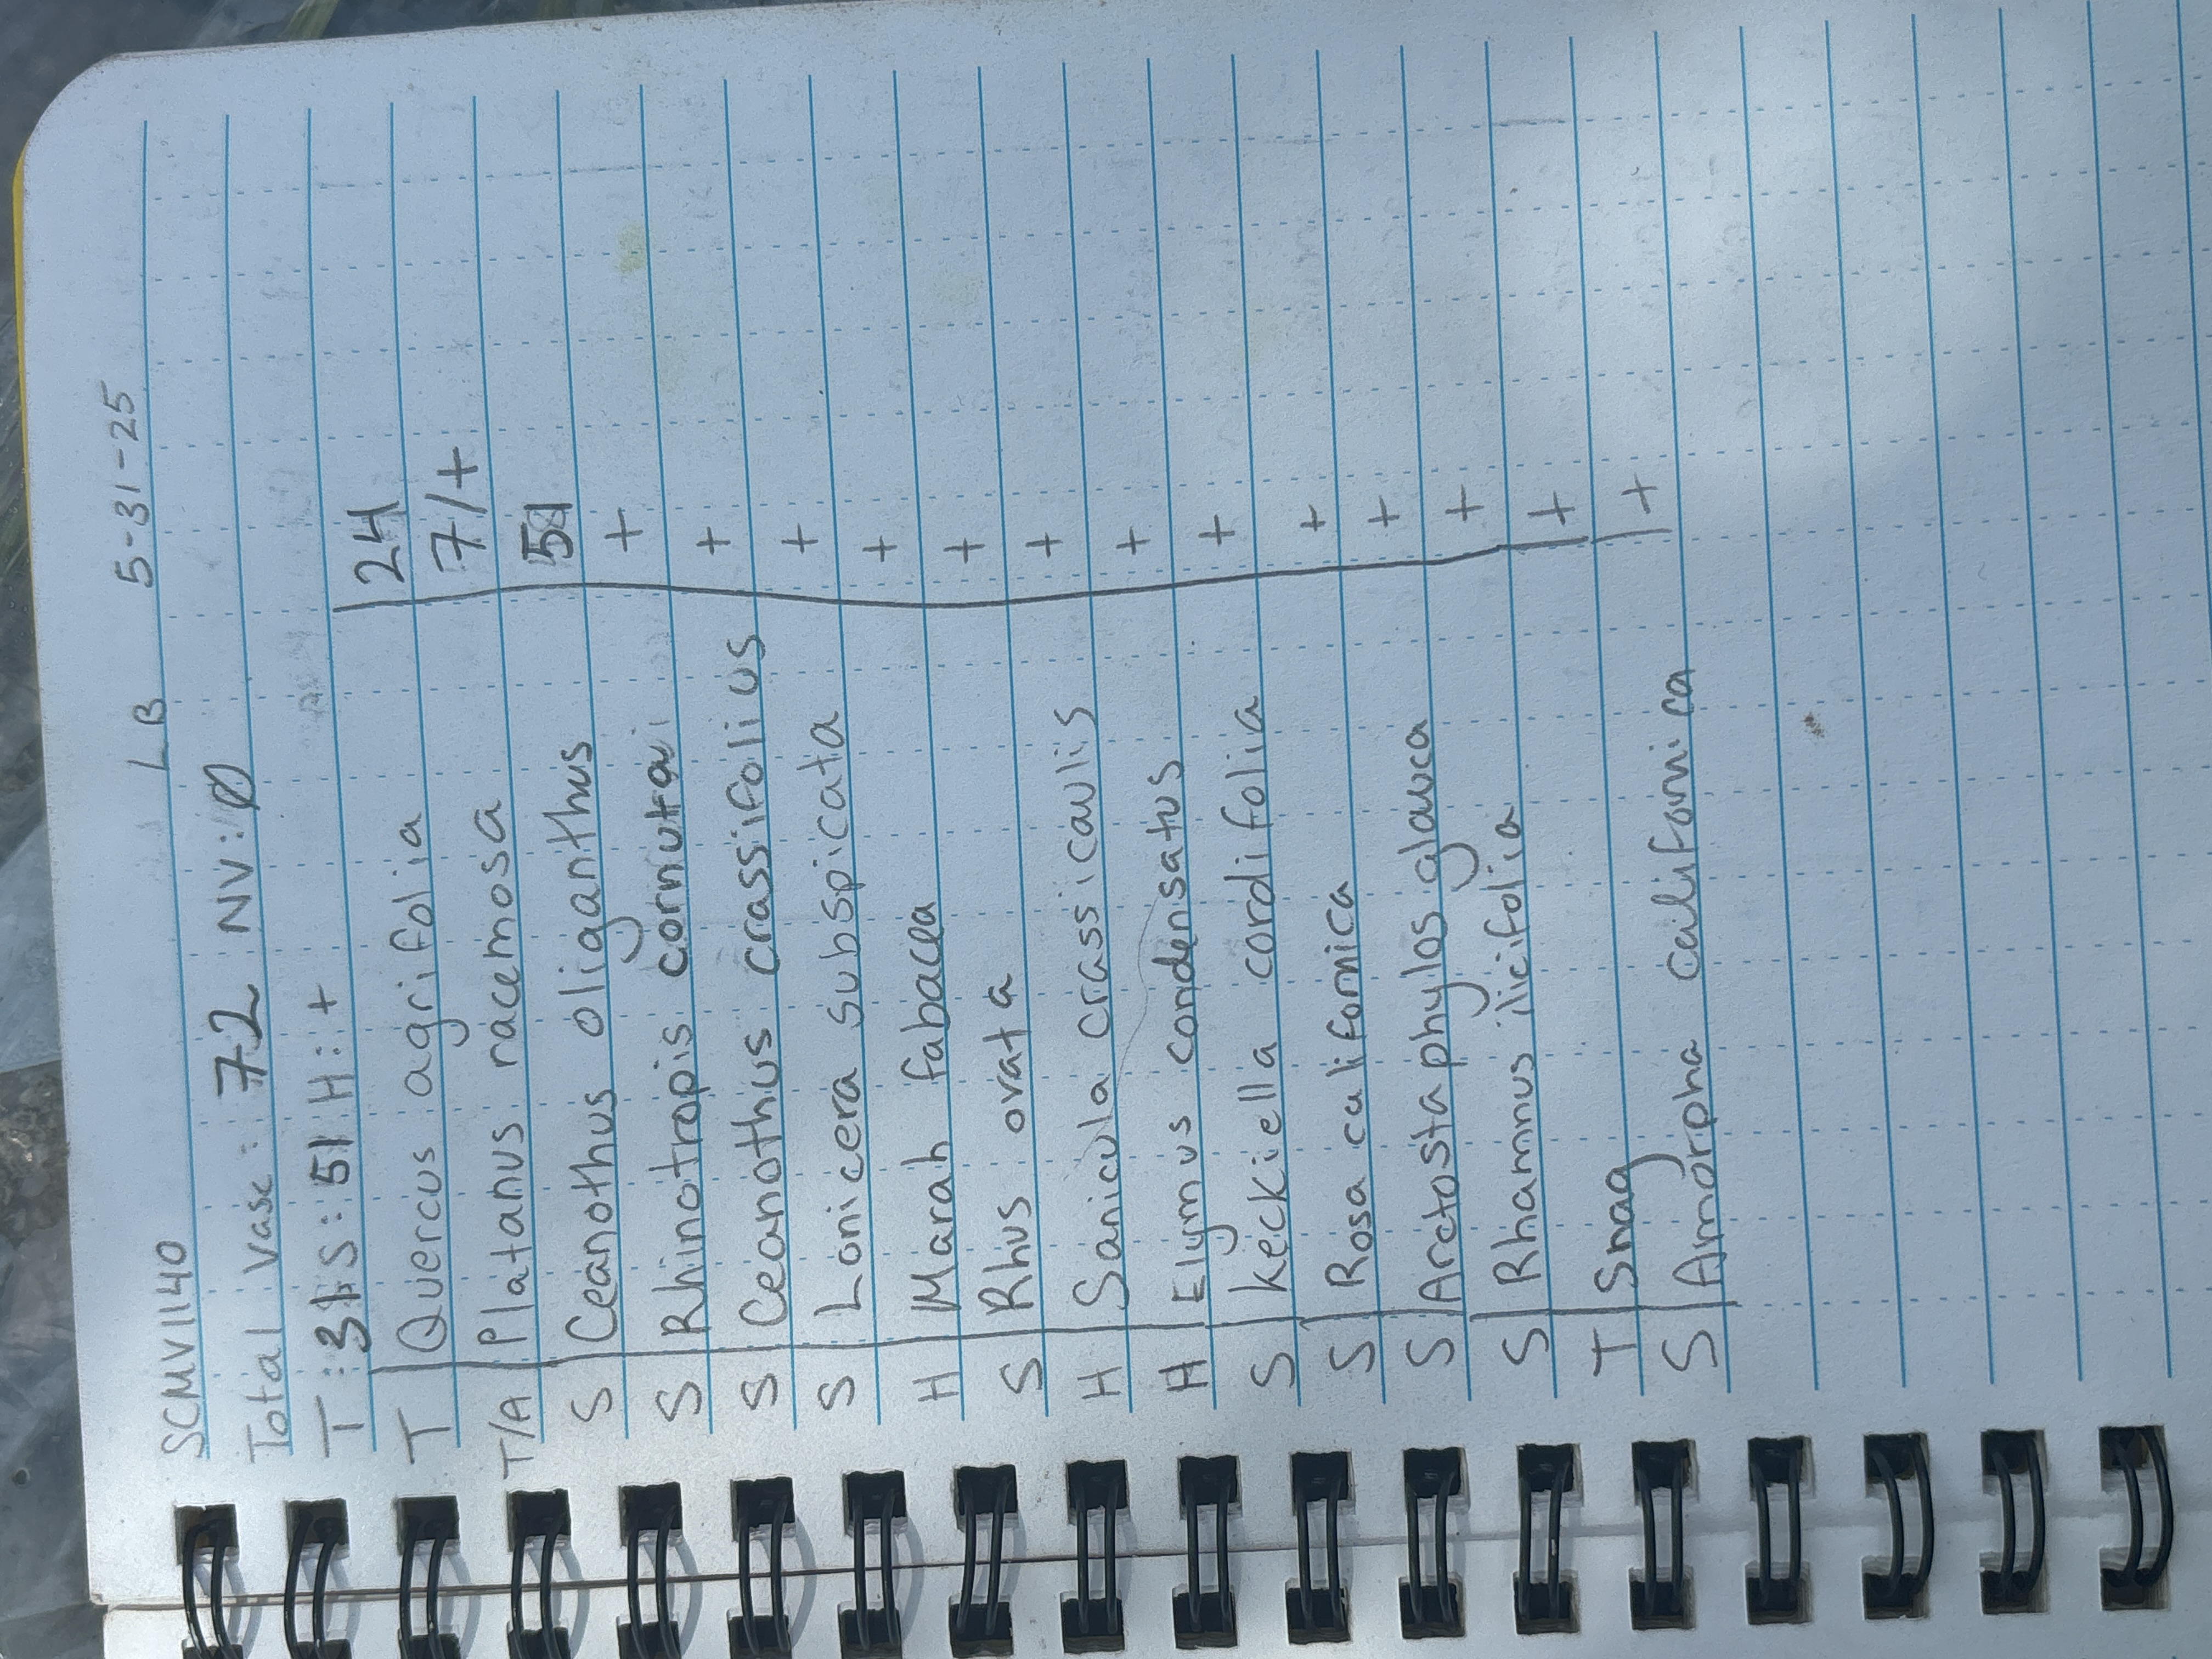 SCMV1140 LB 5-31-25
Total Vasc: 72 NV: Ø
T: 31 S: 51 H: +
T Quercus agrifolia 24
T/A Platanus racemosa 7/+
S Ceanothus oliganthus 51
S Rhinotropis cornuta +
S Ceanothus crassifolius +
S Lonicera subspicata +
H Marah fabacea +
S Rhus ovata +
H Sanicula crassicaulis +
H Elymus condensatus +
S Keckiella cordifolia +
S Rosa californica +
S Arctostaphylos glauca +
S Rhamnus ilicifolia +
T Snag +
S Amorpha californica +